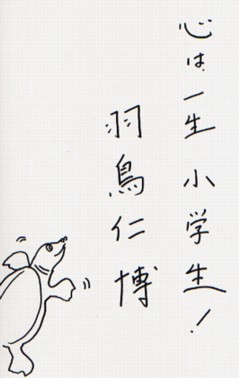 心は一生小学生！
羽鳥仁博